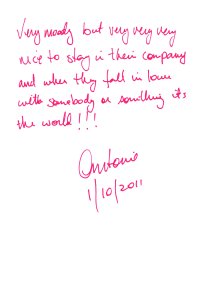 Very moody but very very very
nice to stay in their company
and when they fall in love
with somebody or something it's
the world!!!
Antonio
1/10/2011